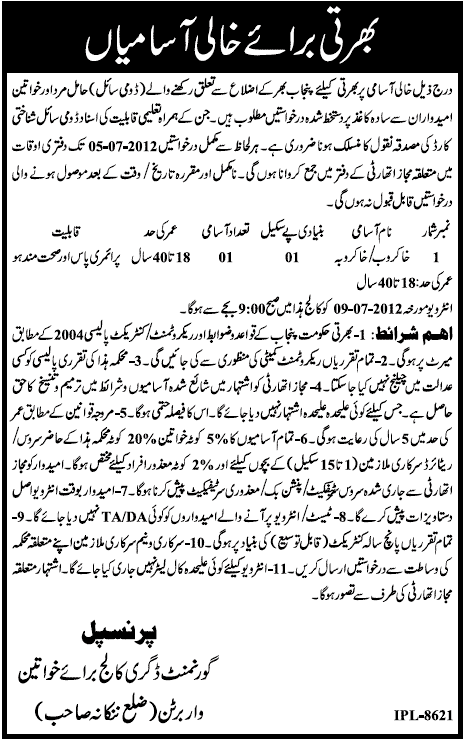 بھرتی برائے خالی آسامیاں
درج ذیل خالی آسامی پر بھرتی کیلئے پنجاب بھر کے اضلاع سے تعلق رکھنے والے (ڈومی سائل) حامل مرد اور خواتین
امیدواران سے سادہ کاغذ پر دستخط شدہ درخواستیں مطلوب ہیں۔ جن کے ہمراہ تعلیمی قابلیت کی اسناد ڈومی سائل شناختی
کارڈ کی مصدقہ نقول کا منسلک ہونا ضروری ہے۔ ہر لحاظ سے مکمل درخواستیں 2012-07-05 تک دفتری اوقات
میں متعلقہ مجاز اتھارٹی کے دفتر میں جمع کروانا ہوں گی۔ نامکمل اور مقررہ تاریخ/ وقت کے بعد موصول ہونے والی
درخواستیں قابل قبول نہ ہوں گی۔
نمبر شمار نام آسامی بنیادی پے سکیل تعداد آسامی عمر کی حد قابلیت
1 خاکروب/ خاکروبہ 01 01 18 تا 40 سال پرائمری پاس اور صحت مند ہو
عمر کی حد: 18 تا 40 سال
انٹرویو مورخہ 2012-07-09 کو کالج ہذا میں صبح 9:00 بجے سے ہوگا۔
اہم شرائط: 1- بھرتی حکومت پنجاب کے قواعد و ضوابط اور ریکروٹمنٹ/ کنٹریکٹ پالیسی 2004 کے مطابق
میرٹ پر ہوگی۔ 2- تمام تقرریاں ریکروٹمنٹ کمیٹی کی منظوری سے کی جائیں گی۔ 3- محکمہ ہذا کی تقرری پالیسی کو کسی
عدالت میں چیلنج نہیں کیا جا سکتا۔ 4- مجاز اتھارٹی کو اشتہار میں شائع شدہ آسامیوں و شرائط میں ترمیم و تنسیخ کا حق
حاصل ہے۔ جس کیلئے کوئی علیحدہ علیحدہ اشتہار نہیں دیا جائے گا۔ اس کا فیصلہ حتمی ہوگا۔ 5- مروجہ قوانین کے مطابق عمر
کی حد میں 5 سال کی رعایت ہوگی۔ 6- تمام آسامیوں کا 5% کوٹہ خواتین 20% کوٹہ محکمہ ہذا کے حاضر سروس/
ریٹائرڈ سرکاری ملازمین (1 تا 15 سکیل) کے بچوں کیلئے اور 2% کوٹہ معذور افراد کیلئے مختص ہوگا۔ امیدوار کو مجاز
اتھارٹی سے جاری شدہ سروس سرٹیفکیٹ/ پنشن بک/ معذوری سرٹیفکیٹ پیش کرنا ہوگا۔ 7- امیدوار بوقت انٹرویو اصل
دستاویزات پیش کرے گا۔ 8- ٹیسٹ/ انٹرویو پر آنے والے امیدواروں کو کوئی TA/DA نہیں دیا جائے گا۔ 9-
تمام تقرریاں پانچ سالہ کنٹریکٹ (قابل توسیع) کی بنیاد پر ہوگی۔ 10- سرکاری و نیم سرکاری ملازمین اپنے متعلقہ محکمہ
کی وساطت سے درخواستیں ارسال کریں۔ 11- انٹرویو کیلئے کوئی علیحدہ کال لیٹر نہیں جاری کیا جائے گا۔ اشتہار متعلقہ
مجاز اتھارٹی کی طرف سے تصور ہوگا۔
پرنسپل
گورنمنٹ ڈگری کالج برائے خواتین
واربرٹن (ضلع ننکانہ صاحب)
IPL-8621